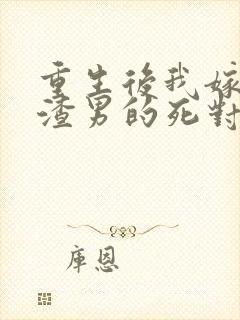 重生後我嫁
渣男的死對
庫恩